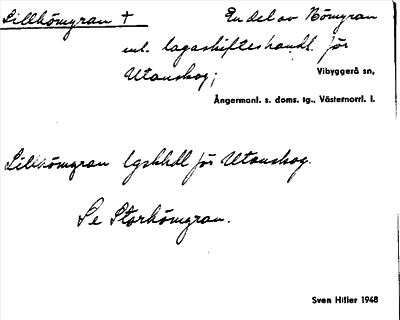 Lillkömgran † En del av Kömgran
enl. lagaskifteshandl. för
Utanskog;
Vibyggerå sn,
Ångermanl. s. doms. tg., Västernorrl. l.
Lillkömgran lgskhdl för Utanskog.
Se Storkömgran.
Sven Hitier 1948